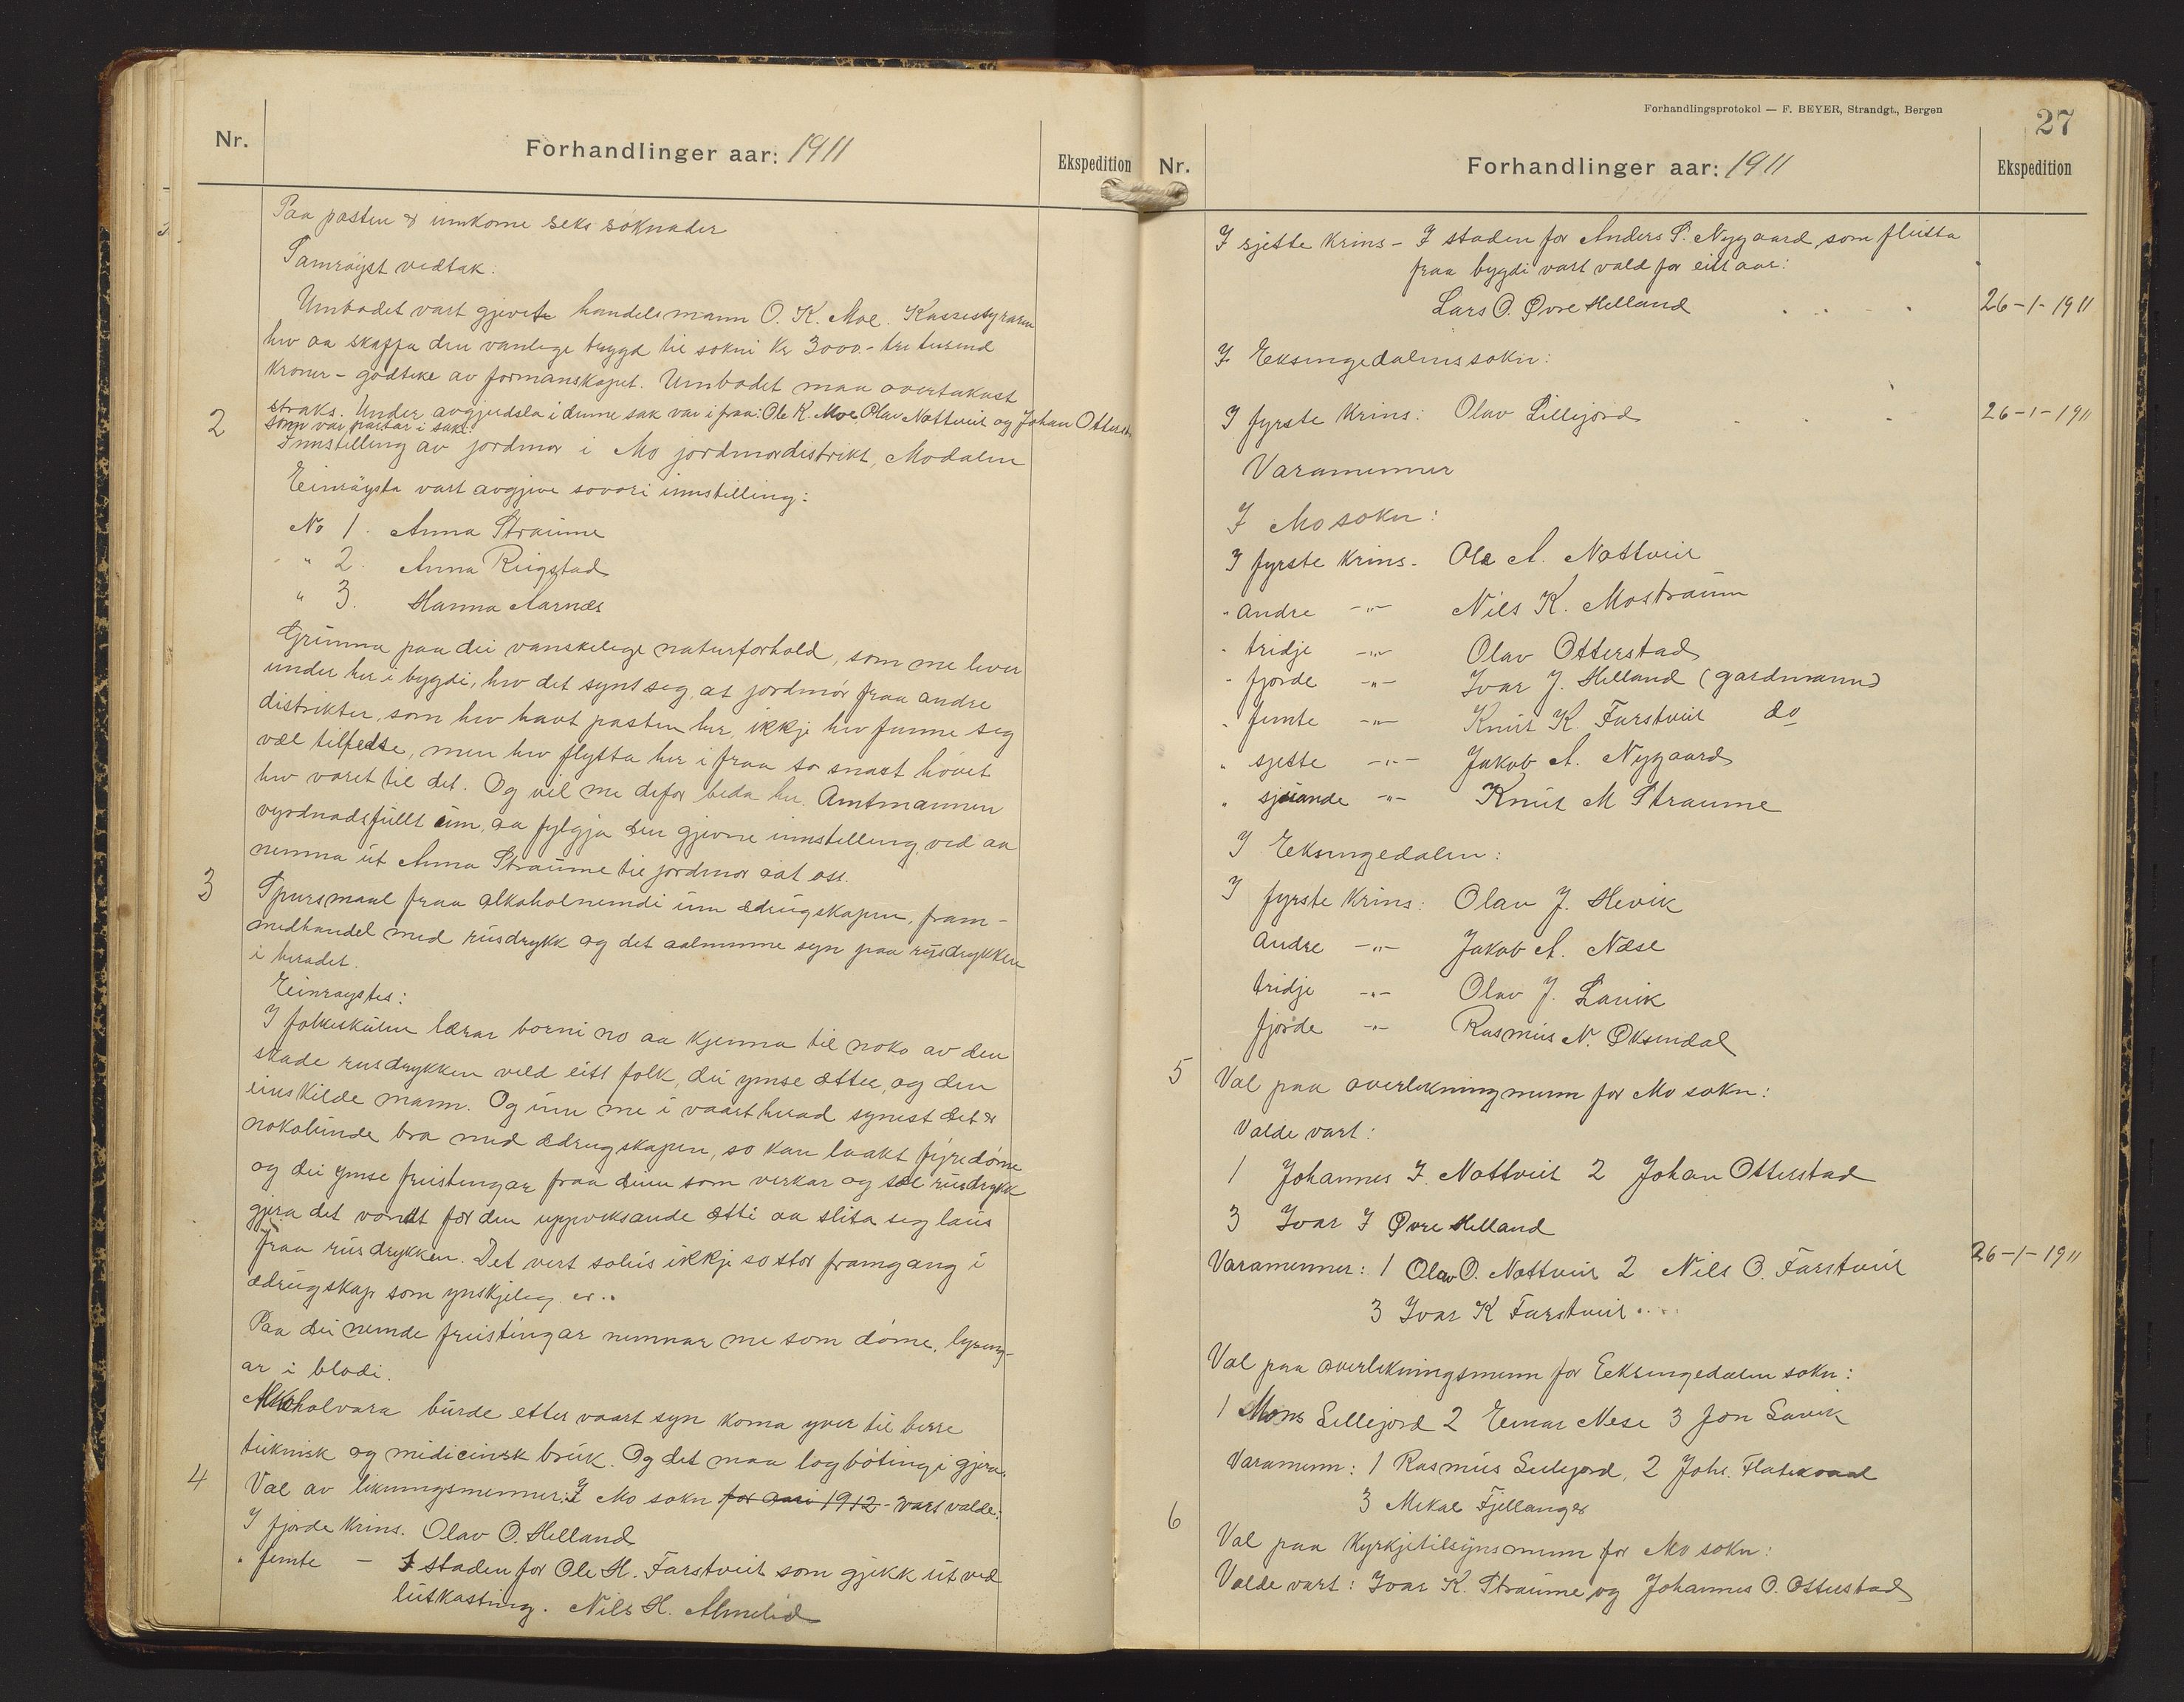 Nr.
Forhandlinger aar: 1911
Ekspedition
Paa posten er innkome seks söknader
Samröyst vedtak:
Umbodet vart gjevet handelsmann O. K. Moe. Kassestyraren
hev aa skaffa den vanlege trygd til sokni Kr 3000 - tri tusend
kroner - godteke av formanskapet. Umbodet maa overtakast
straks. Under avgjerdsla i denne sak var ifraa: Ole K. Moe, Olav Nottveit og Johan Otterstad
som var partar i saki.
2
Innstelling av jordmor i Mo jordmordistrikt, Modalen
Einröysta vart avgjeve sovori innstelling:
No 1. Anna Straume
" 2. Anna Rigstad
" 3. Hanna Aarnæs
Grunna paa dei vanskelege naturforhold, som me lever
under her i bygdi, hev det synt seg, at jordmör fraa andre
distrikter, som hev havt posten her, ikkje hev funne seg
væl tilfredse, men hev flytta her ifraa so snart hövet
hev voret til det. Og vil me defor beda hr. Amtmannen
vyrdnadsfullt um, aa fylgja den gjevne innstelling, ved aa
nemna ut Anna Straume til jordmor aat oss.
3
Spursmaal fraa alkoholnemdi um ædrugskapen, fram-
medhandel med rusdrykk og det aalmenne syn paa rusdrykken
i heradet.
Einröystes:
I folkeskulen lærar borni no aa kjenna til noko av den
skade rusdrykken veld eitt folk, dei ymse ætter, og den
einskilde mann. Og um me i vaart herad synest det er
nokolunde bra med ædrugskapen, so kan laakt fyredöme
og dei ymse freistingar fraa deim som verkar og sel rusdrykk
gjera det vondt for den uppveksande ætti aa slita seg laus
fraa rusdrykken. Det vert soleis ikkje so stor framgang i
ædrugskap som ynskjeleg er.
Paa dei nemde freistingar nemnar me som döme, lysing-
ar i blodi.
Alkoholvara burde etter vaart syn koma yver til berre
teknisk og medicinsk bruk. Og det maa logböting i gjera.
4
Val av likningsmenner: I Mo sokn for aari 1912 - vart valde:
I fjorde krins. Olav O. Helland
" femte — I staden for Ole H. Farstveit som gjekk ut ved
lutkasting. Nils H. Almelid
Forhandlingsprotokol — F. BEYER, Strandgt., Bergen
27
Nr.
Forhandlinger aar: 1911
Ekspedition
I sjette krins - I staden for Anders S. Nygaard som flutta
fraa bygdi vart vald for eitt aar:
Lars O. Øvre Helland 26-1-1911
I Eksingedalens sokn:
I fyrste krins: Olav Lillejord 26-1-1911
Varamenner
I Mo sokn:
I fyrste krins. Ole A. Nottveit
" andre -"- Nils K. Mostraum
" tridje -"- Olav Otterstad
" fjorde -"- Ivar J. Helland (gardmann)
" femte -"- Knut K. Farstveit do
" sjette -"- Jakob A. Nygaard
" sjuande -"- Knut M Straume
I Eksingedalen:
I fyrste krins: Olav J. Hevik
Andre -"- Jakob A. Næse
tridje -"- Olav J. Lavik
fjorde -"- Rasmus N. Øksendal
5
Val paa overlikningmenn for Mo sokn:
Valde vart:
1 Johannes I. Nottveit 2 Johan Otterstad
3 Ivar I Øvre Helland
Varamenner: 1 Olav O. Nottveit 2 Nils O. Farstveit 26-1-1911
3 Ivar K Farstveit
Val paa overlikningsmenn for Eeksingedalen sokn:
1 Mons Lillejord 2 Einar Nese 3 Jon Lavik
Varamenn: 1 Rasmus Lillejord, 2 Johs. Flatekvaal
3 Mikal Fjellanger
6
Val paa Kyrkjetilsynsmenn for Mo sokn:
Valde vart: Ivar K. Straume og Johannes O. Otterstad